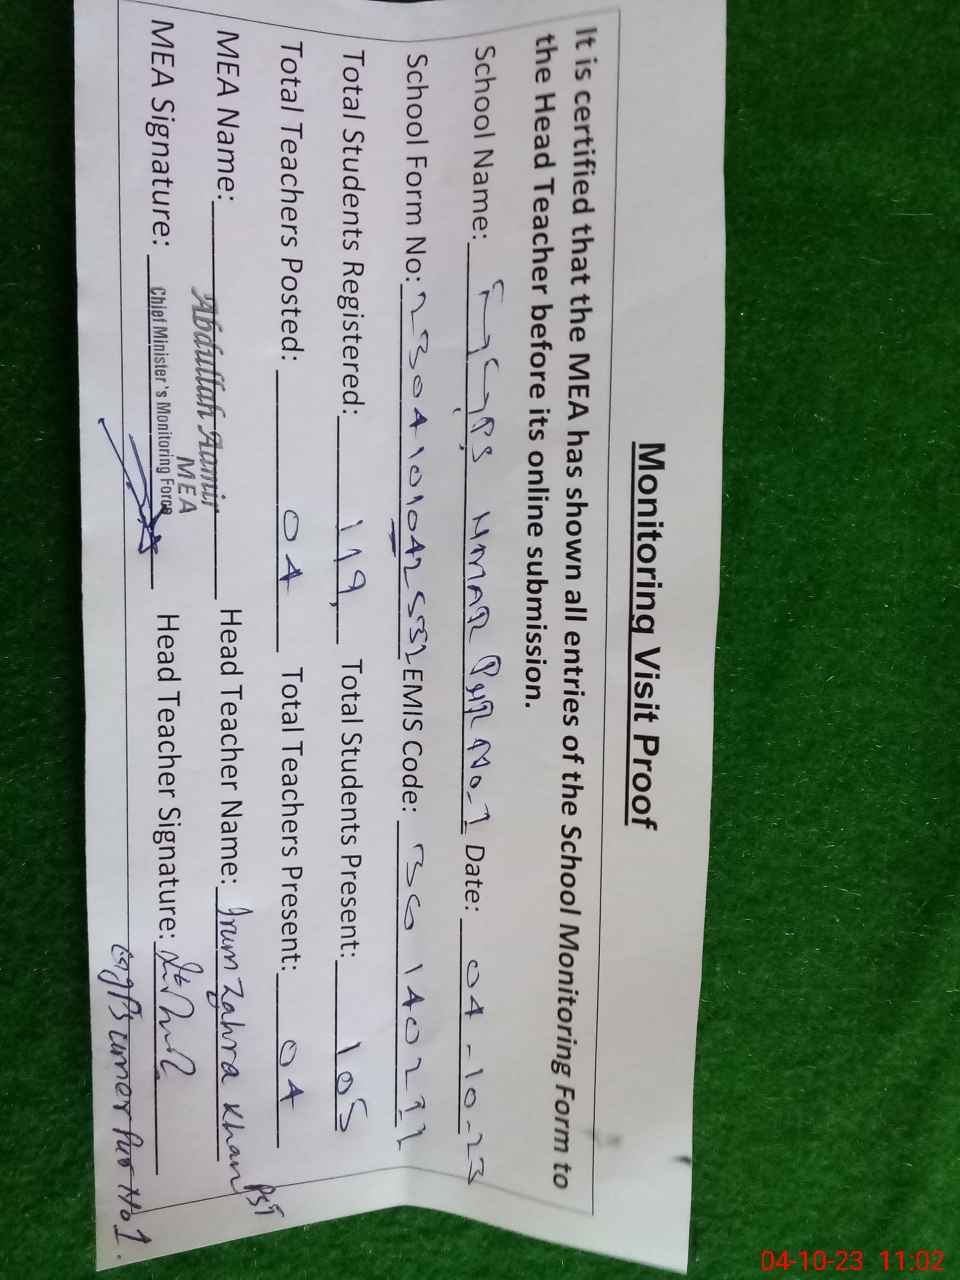 Monitoring Visit Proof
It is certified that the MEA has shown all entries of the School Monitoring Form to
the Head Teacher before its online submission.
School Name: UMAR PUR No.1 Date: 04-10-23
School Form No: EMIS Code:
Total Students Registered: 119 Total Students Present: 105
Total Teachers Posted: 04 Total Teachers Present: 04
MEA Name: Abdullah Aamir Head Teacher Name: Irum Zahra Khan PST
MEA
MEA Signature: Chief Minister's Monitoring Force Head Teacher Signature:
umer Pur No 1.
04-10-23 11:02